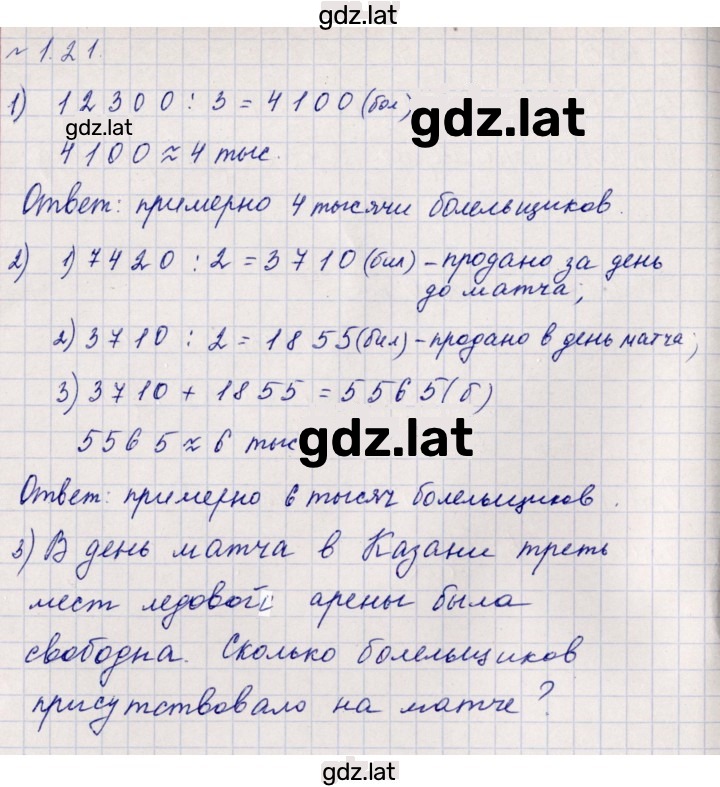 gdz.lat
№ 1.21.
1) 12300 : 3 = 4100 (бол)
gdz.lat
gdz.lat
4100 ≈ 4 тыс.
Ответ: примерно 4 тысячи болельщиков.
2) 1) 7420 : 2 = 3710 (бил) – продано за день
до матча;
2) 3710 : 2 = 1855 (бил) – продано в день матча;
3) 3710 + 1855 = 5565 (б)
5565 ≈ 6 тыс
gdz.lat
Ответ: примерно 6 тысяч болельщиков.
3) В день матча в Казани треть
мест ледовой арены была
свободна. Сколько болельщиков
присутствовало на матче?
gdz.lat